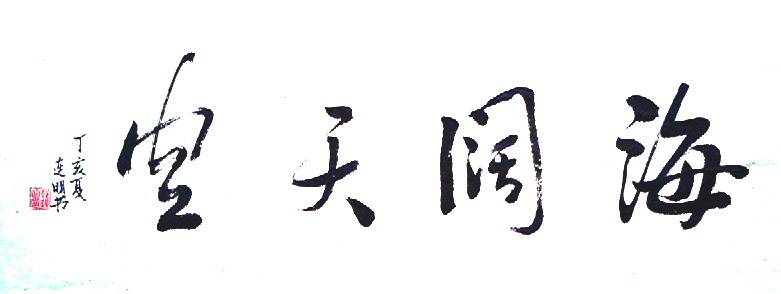 海阔天空
丁亥夏
连明书